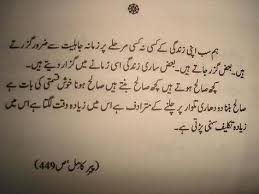 ہم سب اپنی زندگی کے کسی نہ کسی مرحلے پر زمانہ جاہلیت سے ضرور گزرتے
ہیں۔ بعض گزر جاتے ہیں۔ بعض ساری زندگی اسی زمانے میں گزار دیتے ہیں۔
کچھ صالح ہوتے ہیں کچھ صالح بنتے ہیں صالح ہونا خوش قسمتی کی بات ہے
صالح بننا دو دھاری تلوار پر چلنے کے مترادف ہے اس میں زیادہ وقت لگتا ہے اس میں
زیادہ تکلیف سہنی پڑتی ہے۔
(پیر کامل، ص 449)